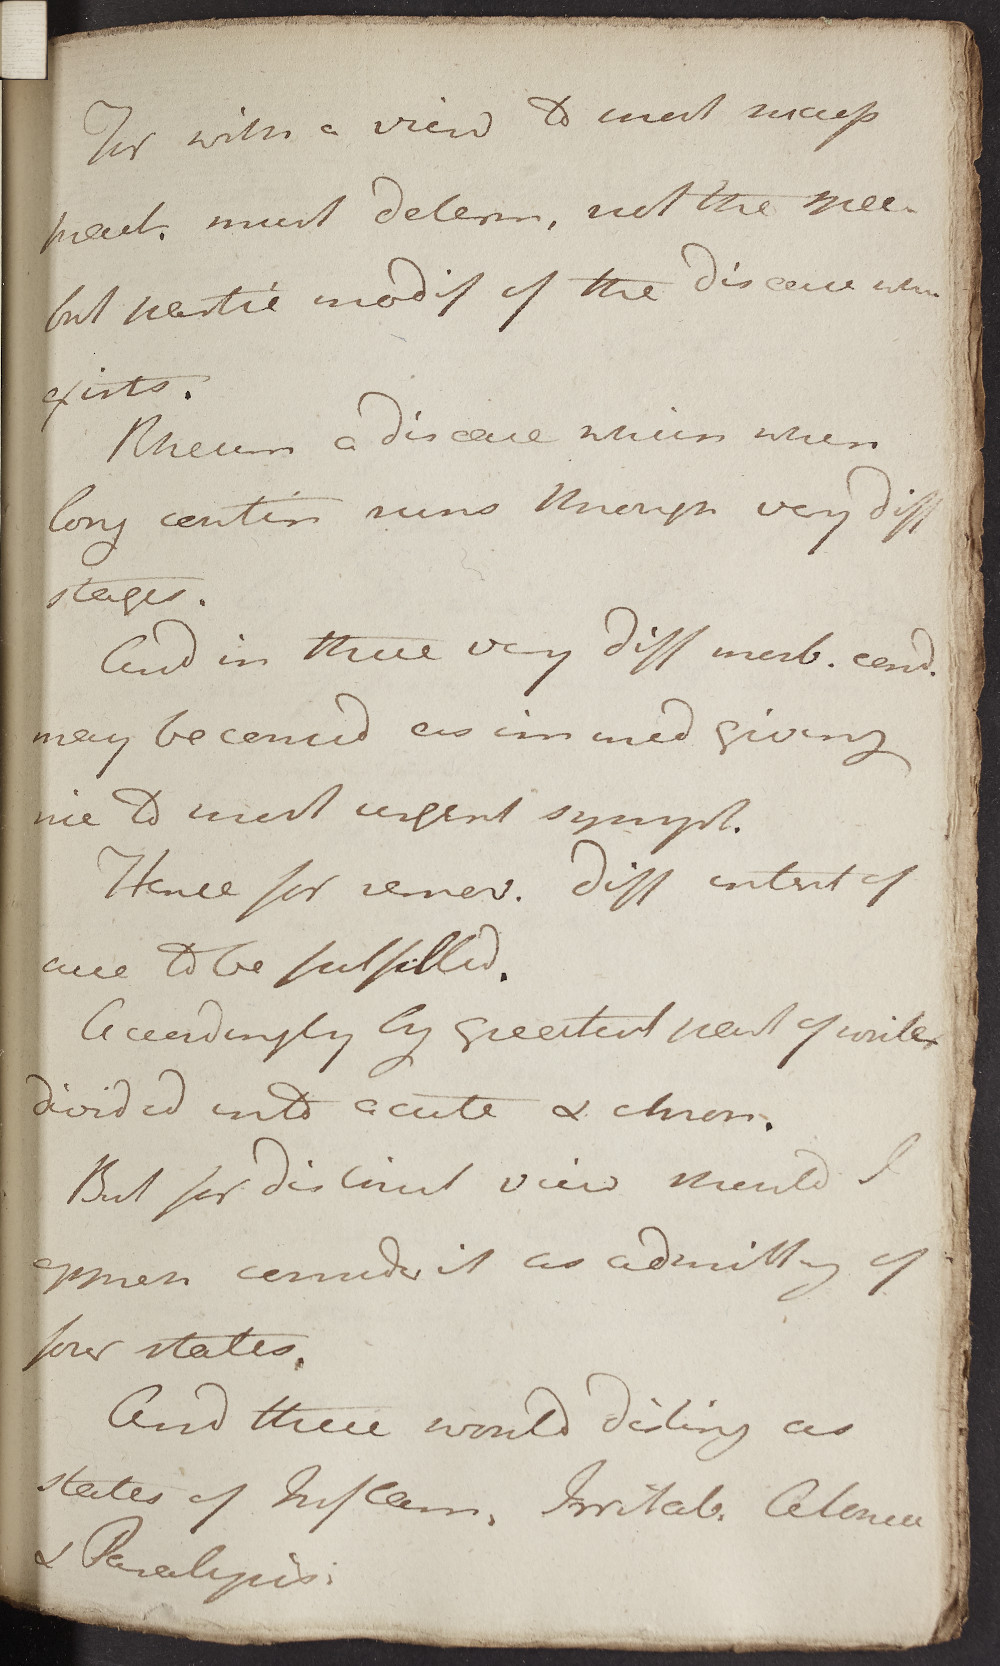 For with a view to most success
pract. must determ, not the mere
but partic modif of the disease when
exists.
Rheum a disease which when
long contin runs through very diff
stages.
And in these very diff morb. cond.
may be consid as immed giving
rise to most urgent sympt.
Hence for remov. diff intent of
cure to be fulfilled.
Accordingly by greatest part of writer
divided into acute & chron.
But for distinct view should I
appren consider it as admitting of
four states.
And these would disting as
states of Inflam, Irritab. Atonia
& Paralysis.